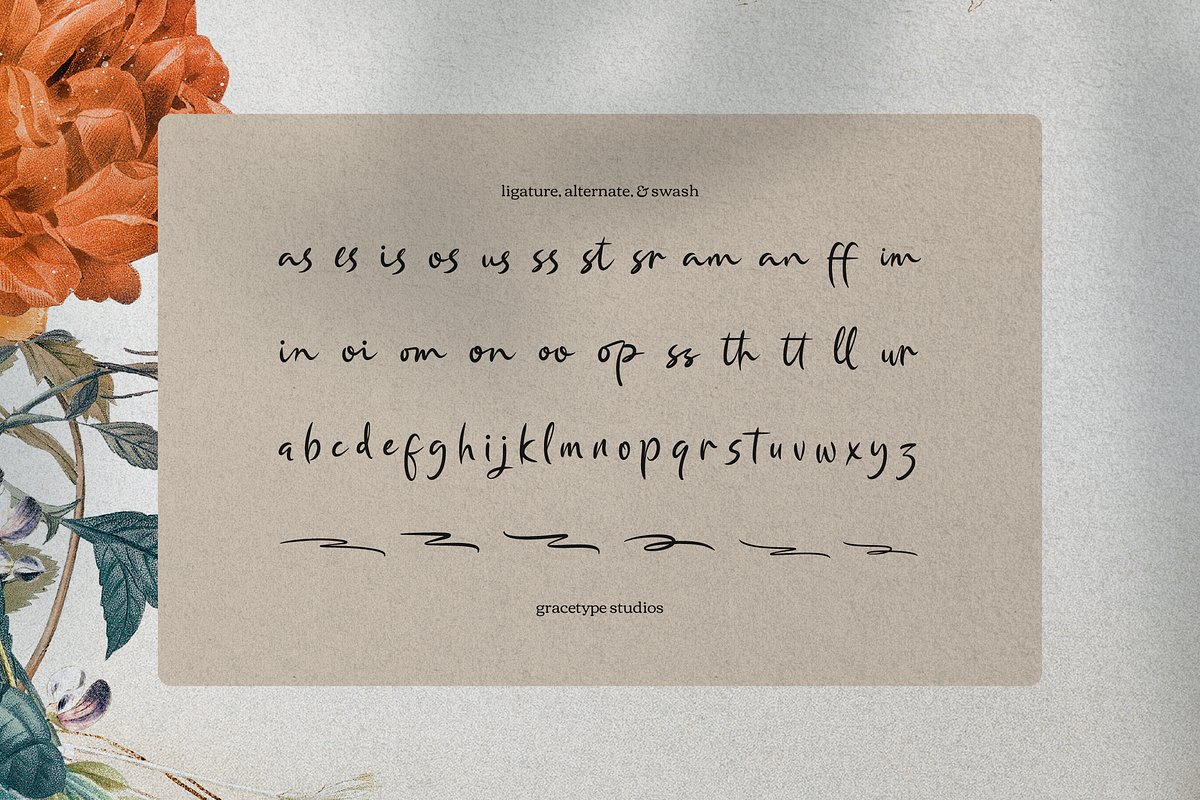 ligature, alternate, & swash
as es is os us ss st sr am an ff im
in oi om on oo op ss th tt ll ur
abcdefghijklmnopqrstuvwxyz
gracetype studios